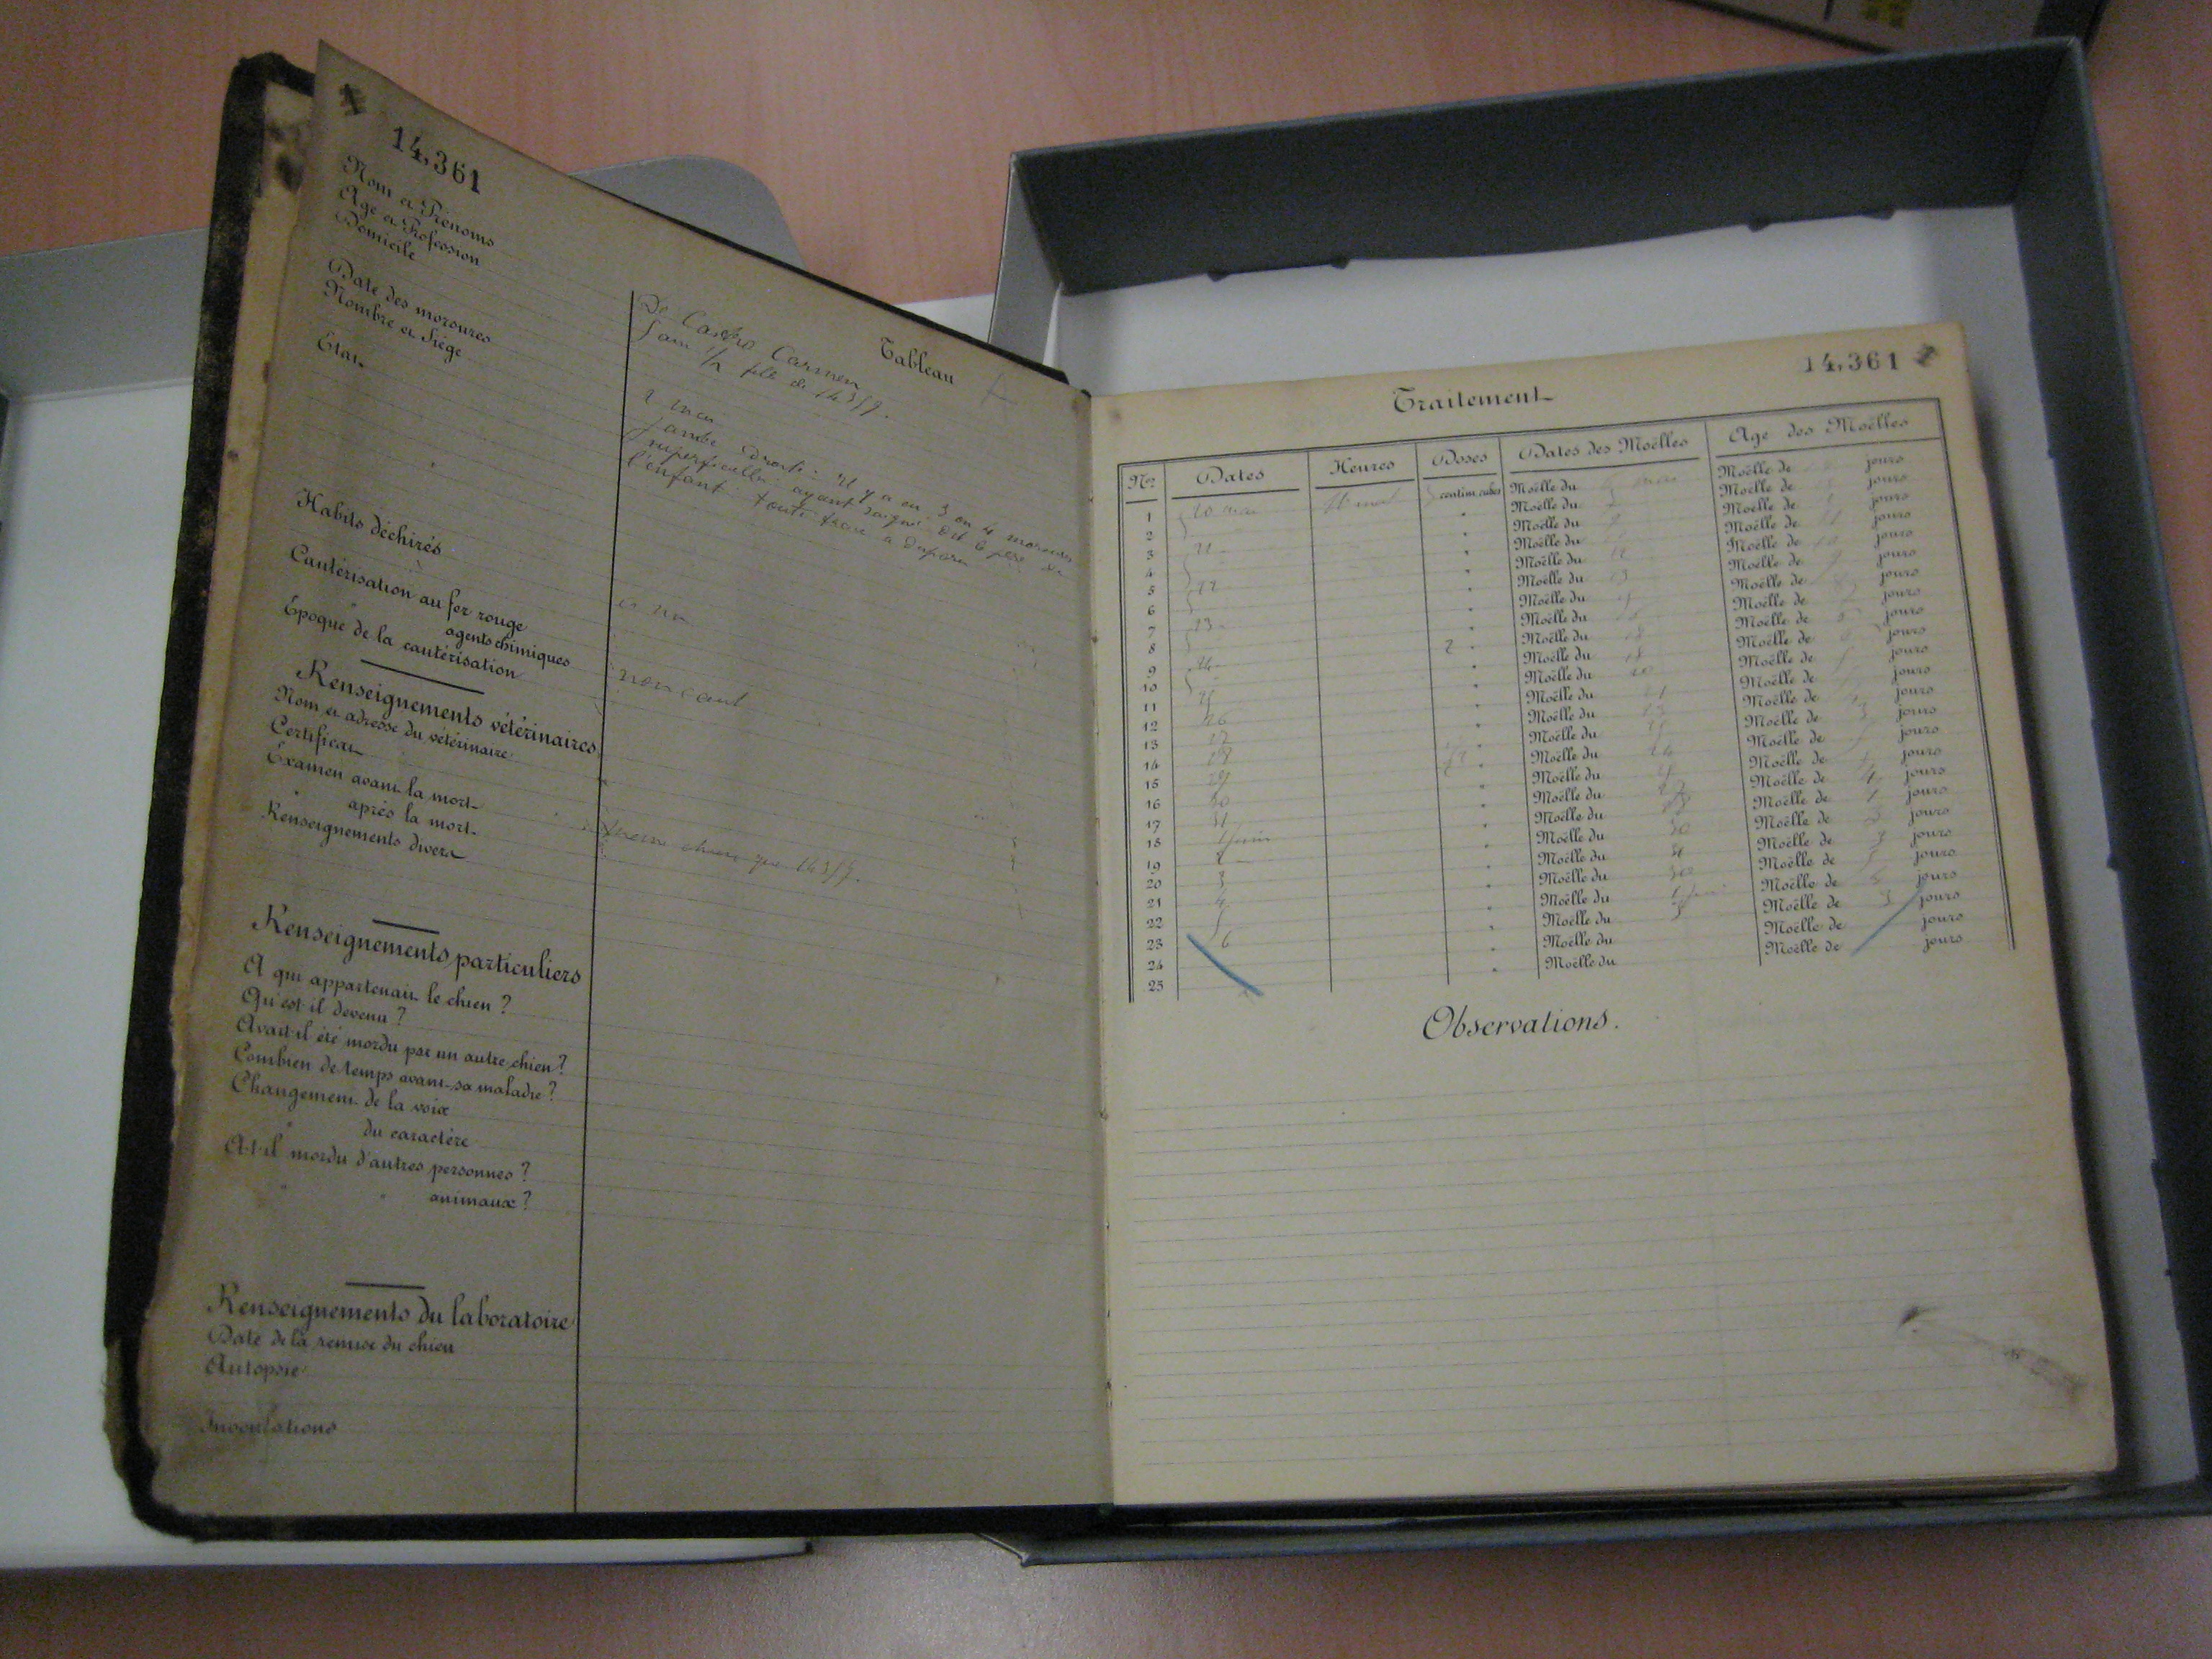 14,361
Tableau
Nom et Prénoms
Age et Profession
Domicile
De Castro Carmen
5 ans 1/2 fille de 14359.
Date des morsures
Nombre et Siège
Etat
2 mai
jambe droite: il y a eu 3 ou 4 morsures
superficielles ayant saigné dit le père de
l'enfant. toute trace a disparu
Habits déchirés
Cautérisation au fer rouge
agents chimiques
Epoque de la cautérisation
non caut
Renseignements vétérinaires
Nom et adresse du vétérinaire
Certificat
Examen avant la mort
après la mort
Renseignements divers
même chien que 14359.
Renseignements particuliers
A qui appartenait le chien ?
Qu'est-il devenu ?
Avait-il été mordu par un autre chien ?
Combien de temps avant sa maladie ?
Changement de la voix
du caractère
A-t-il mordu d'autres personnes ?
animaux ?
Renseignements du laboratoire
Date de la remise du chien
Autopsie
Inoculations
14,361
Traitement
Nos Dates Heures Doses Dates des Moëlles Age des Moëlles
1 20 mai centim. cubes Moëlle du mai Moëlle de jours
2 Moëlle du Moëlle de jours
3 21 Moëlle du Moëlle de jours
4 Moëlle du Moëlle de jours
5 22 Moëlle du Moëlle de jours
6 Moëlle du Moëlle de jours
7 23 Moëlle du Moëlle de jours
8 2 Moëlle du Moëlle de jours
9 24 Moëlle du Moëlle de jours
10 Moëlle du Moëlle de jours
11 25 Moëlle du Moëlle de jours
12 26 Moëlle du Moëlle de jours
13 27 Moëlle du Moëlle de jours
14 28 Moëlle du Moëlle de jours
15 29 Moëlle du Moëlle de jours
16 30 Moëlle du Moëlle de jours
17 31 Moëlle du Moëlle de jours
18 1 juin Moëlle du Moëlle de jours
19 2 Moëlle du Moëlle de jours
20 3 Moëlle du Moëlle de jours
21 4 Moëlle du Moëlle de jours
22 5 Moëlle du Moëlle de jours
23 6 Moëlle du Moëlle de jours
24 Moëlle du Moëlle de jours
25 Moëlle du Moëlle de jours
Observations.